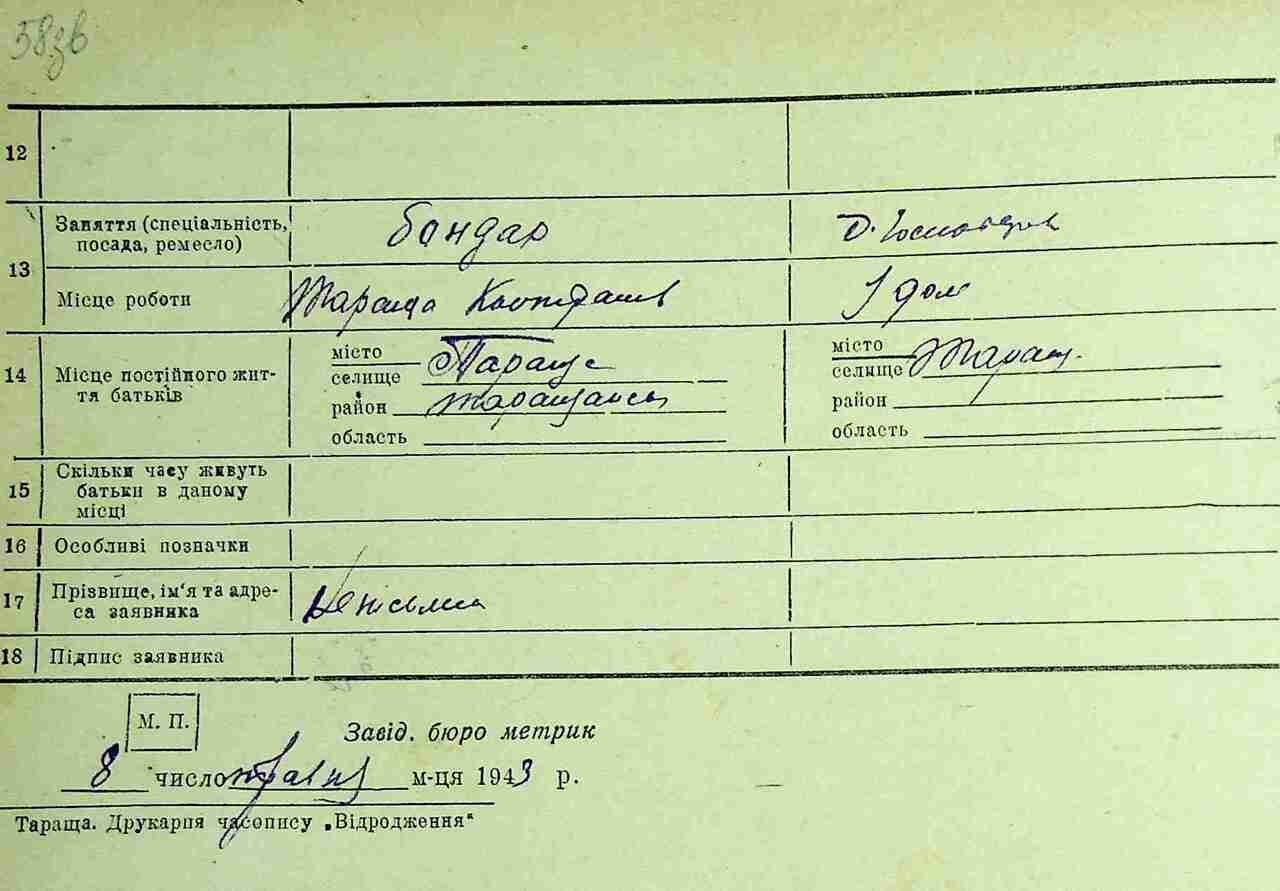 58зв
12
13
Заняття (спеціальність, посада, ремесло)
бондар
Д. Господар
Місце роботи
Тараща
дом
14
Місце постійного життя батьків
місто
селище
Тараща
район
таращанськ
область
місто
селище
Тараща
район
область
15
Скільки часу живуть
батьки в даному
місці
16
Особливі позначки
17
Прізвище, ім'я та адре-
са заявника
18
Підпис заявника
М. П.
Завід. бюро метрик
8 число травня м-ця 1943 р.
Тараща. Друкарня часопису „Відродження"